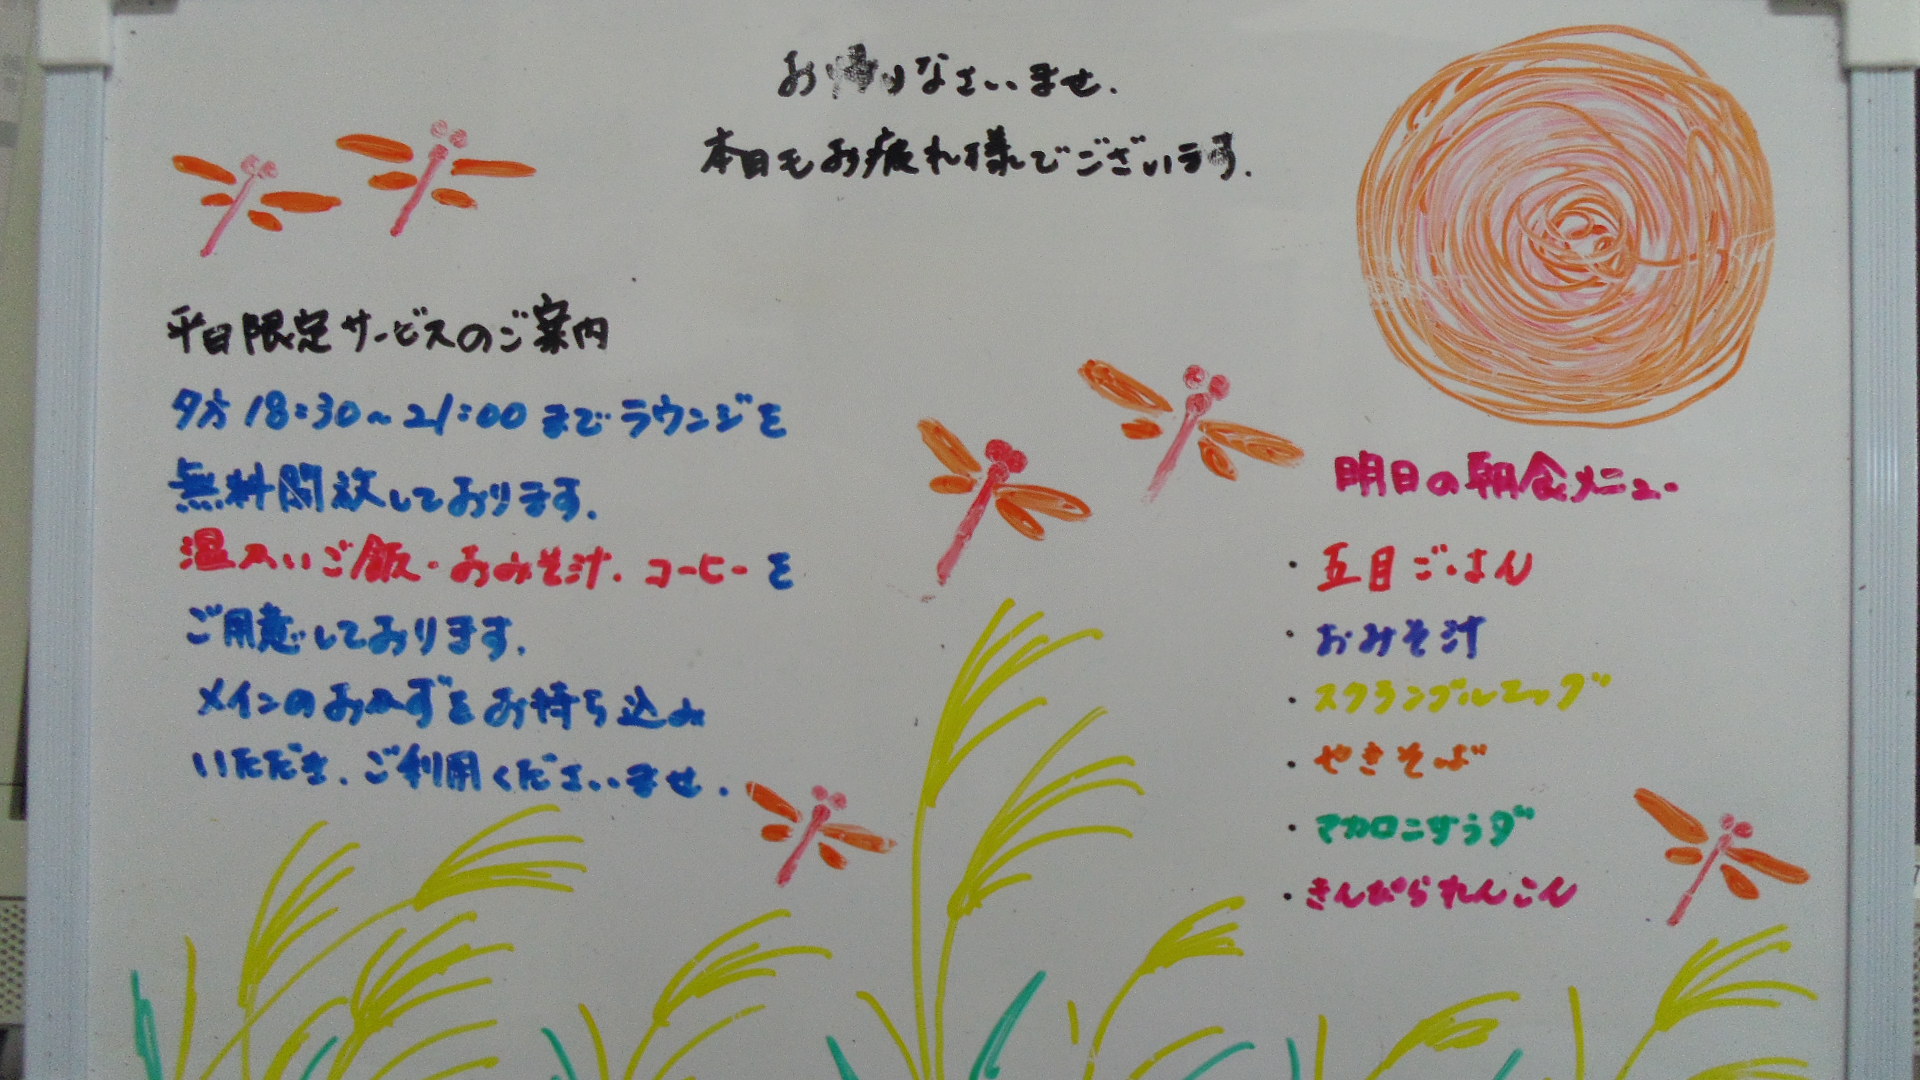 お帰りなさいませ.
本日もお疲れ様でございます.
平日限定サービスのご案内
夕方18:30~21:00までラウンジを
無料開放しております.
温かいご飯・おみそ汁.コーヒーを
ご用意しております.
メインのおかずをお持ち込み
いただき.ご利用くださいませ.
明日の朝食メニュー
・五目ごはん
・おみそ汁
・スクランブルエッグ
・やきそば
・マカロニサラダ
・きんぴられんこん